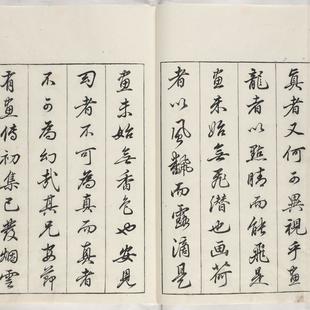 真者又何可異視乎畫
龍者以點睛而能飛是
畫未始無飛潛也画荷
者以風飄而露滴是
畫未始無香色也安見
幻者不可為真而真者
不可為幻哉其兄安節
有畫傳初集已發烟雲